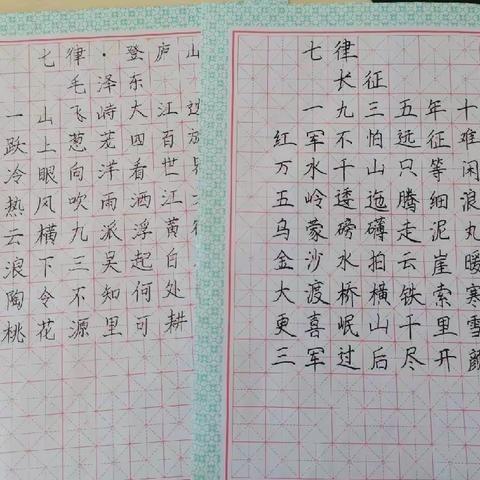 七律·登庐山
毛泽东
一山飞峙大江边
跃上葱茏四百
冷眼向洋看世
热风吹雨洒江
云横九派浮黄
浪下三吴起白
陶令不知何处
桃花源里可耕
七律
长征
一九三五年十
红军不怕远征难
万水千山只等闲
五岭逶迤腾细浪
乌蒙磅礴走泥丸
金沙水拍云崖暖
大渡桥横铁索寒
更喜岷山千里雪
三军过后尽开颜